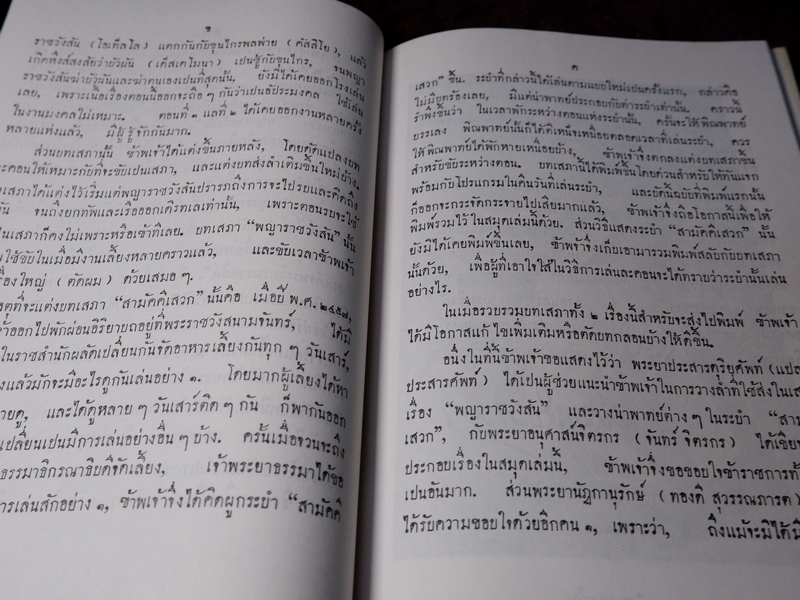 ๖
ราชวังสัน (โอเท็ลโล) แตกกันกับขุนไกรพลพ่าย (คัสสิโย), แล้ว
เกิดหึงส์สงสัยว่าบัวผัน (เดสเดโมนา) เปนชู้กับขุนไกร, จนพญา
ราชวังสันฆ่าบัวผันและฆ่าตนเองเปนที่สุดนั้น, ยังมิได้เคยออกโรงเล่น
เลย, เพราะเนื้อเรื่องตอนนี้ออกจะถือๆกันว่าเปนอัประมงคล ใช้เล่น
ในงานมงคลไม่เหมาะ. ตอนที่ ๑ แลที่ ๒ ได้เคยออกงานหลายครั้ง
หลายแห่งแล้ว, มีผู้รู้จักกันมาก.
ส่วนบทเสภานั้น ข้าพเจ้าได้แต่งขึ้นภายหลัง, โดยตัดแปลงบท
ะคอนให้เหมาะกับที่จะขับเปนเสภา, และแต่งบทส่งลำเติมขึ้นใหม่บ้าง.
ทเสภาได้แต่งไว้เริ่มแต่พญาราชวังสันปรารภถึงการจะไปรบและคิดถึง
ผัน จนถึงยกทัพและเรือออกเดิรทเลเท่านั้น, เพราะตอนรบจะใช้
นเสภาก็คงไม่เพราะหรือเข้าทีเลย. บทเสภา “พญาราชวังสัน” นั้น
ยใช้ขับในเมื่อมีงานเลี้ยงหลายคราวแล้ว, และขับเวลาข้าพเจ้า
รื่องใหญ่ (ตัดผม) ด้วยเสมอๆ.
ตุที่จะแต่งบทเสภา “สามัคคีเสวก” นั้นคือ เมื่อปี พ.ศ. ๒๔๕๗,
จ้าออกไปพักผ่อนอิริยาบถอยู่ที่พระราชวังสนามจันทร์, ได้มี
ในราชสำนักผลัดเปลี่ยนกันจัดอาหารเลี้ยงกันทุกๆวันเสาร์,
งแล้วมักจะมีอะไรดูกันเล่นอย่าง ๑. โดยมากผู้เลี้ยงได้หา
ายดู, และได้ดูหลายๆวันเสาร์ติดๆกัน ก็พากันออก
เปลี่ยนเปนมีการเล่นอย่างอื่นๆบ้าง. ครั้นเมื่อจวนจะถึง
ธรรมาธิกรณาธิบดีจัดเลี้ยง, เจ้าพระยาธรรมาได้ขอ
การเล่นสักอย่าง ๑, ข้าพเจ้าจึ่งได้คิดผูกระบำ “สามัคคี
ค
เสวก” ขึ้น. ระบำที่กล่าวนี้ได้เล่นตามแบบใหม่เปนครั้งแรก, กล่าวคือ
ไม่มีบทร้องเลย, มีแต่น่าพาทย์ประกอบกับท่าระบำเท่านั้น. คราวนี้
รำพึงขึ้นว่า ในเวลาพักระหว่างตอนแห่งระบำนั้น, ครั้นจะให้พิณพาทย์
บรรเลง พิณพาทย์นั้นก็ได้ตีเหน็จเหนื่อยตลอดเวลาที่เล่นระบำ, ควร
ให้พิณพาทย์ได้พักหายเหนื่อยบ้าง, ข้าพเจ้าจึ่งตกลงแต่งบทเสภาขึ้น
สำหรับขับระหว่างตอน. บทเสภานั้นได้พิมพ์ขึ้นโดยด่วนสำหรับให้ทันแจก
พร้อมกับโปรแกรมในคืนวันที่เล่นระบำ, และฉบับที่พิมพ์แรกนั้น
ก็ออกจะกระจัดกระจายไปเสียมากแล้ว, ข้าพเจ้าจึ่งถือโอกาสนี้เพื่อให้
พิมพ์รวมไว้ในสมุดเล่มนี้ด้วย. ส่วนวิธีแสดงระบำ “สามัคคีเสวก” นั้น
ยังมิได้เคยพิมพ์ขึ้นเลย, ข้าพเจ้าจึ่งเก็บเอามารวมพิมพ์สลับกับบทเสภา
นั้นด้วย, เพื่อผู้ที่เอาใจใส่ในวิธีการเล่นละคอนจะได้ทราบว่าระบำนั้นเล่น
อย่างไร.
ในเมื่อรวบรวมบทเสภาทั้ง ๒ เรื่องนี้สำหรับจะส่งไปพิมพ์ ข้าพเจ้
ได้มีโอกาสแก้ไขเพิ่มเติมหรือตัดบทกลอนบ้างให้ดีขึ้น.
อนึ่งในที่นี้ข้าพเจ้าขอแสดงไว้ว่า พระยาประสานดุริยศัพท์ (แปล
ประสารศัพท์) ได้เปนผู้ช่วยแนะนำข้าพเจ้าในการวางลำที่ใช้ส่งในเส
เรื่อง “พญาราชวังสัน” และวางน่าพาทย์ต่างๆในระบำ “สาม
เสวก”, กับพระยาอนุศาสน์จิตรกร (จันทร์ จิตรกร) ได้เขียน
ประกอบเรื่องในสมุดเล่มนี้, ข้าพเจ้าจึ่งขอขอบใจข้าราชการทั้
เปนอันมาก. ส่วนพระยานัฏกานุรักษ์ (ทองดี สุวรรณภารต)
ได้รับความขอบใจด้วยอีกคน ๑, เพราะว่า, ถึงแม้จะมิได้มี